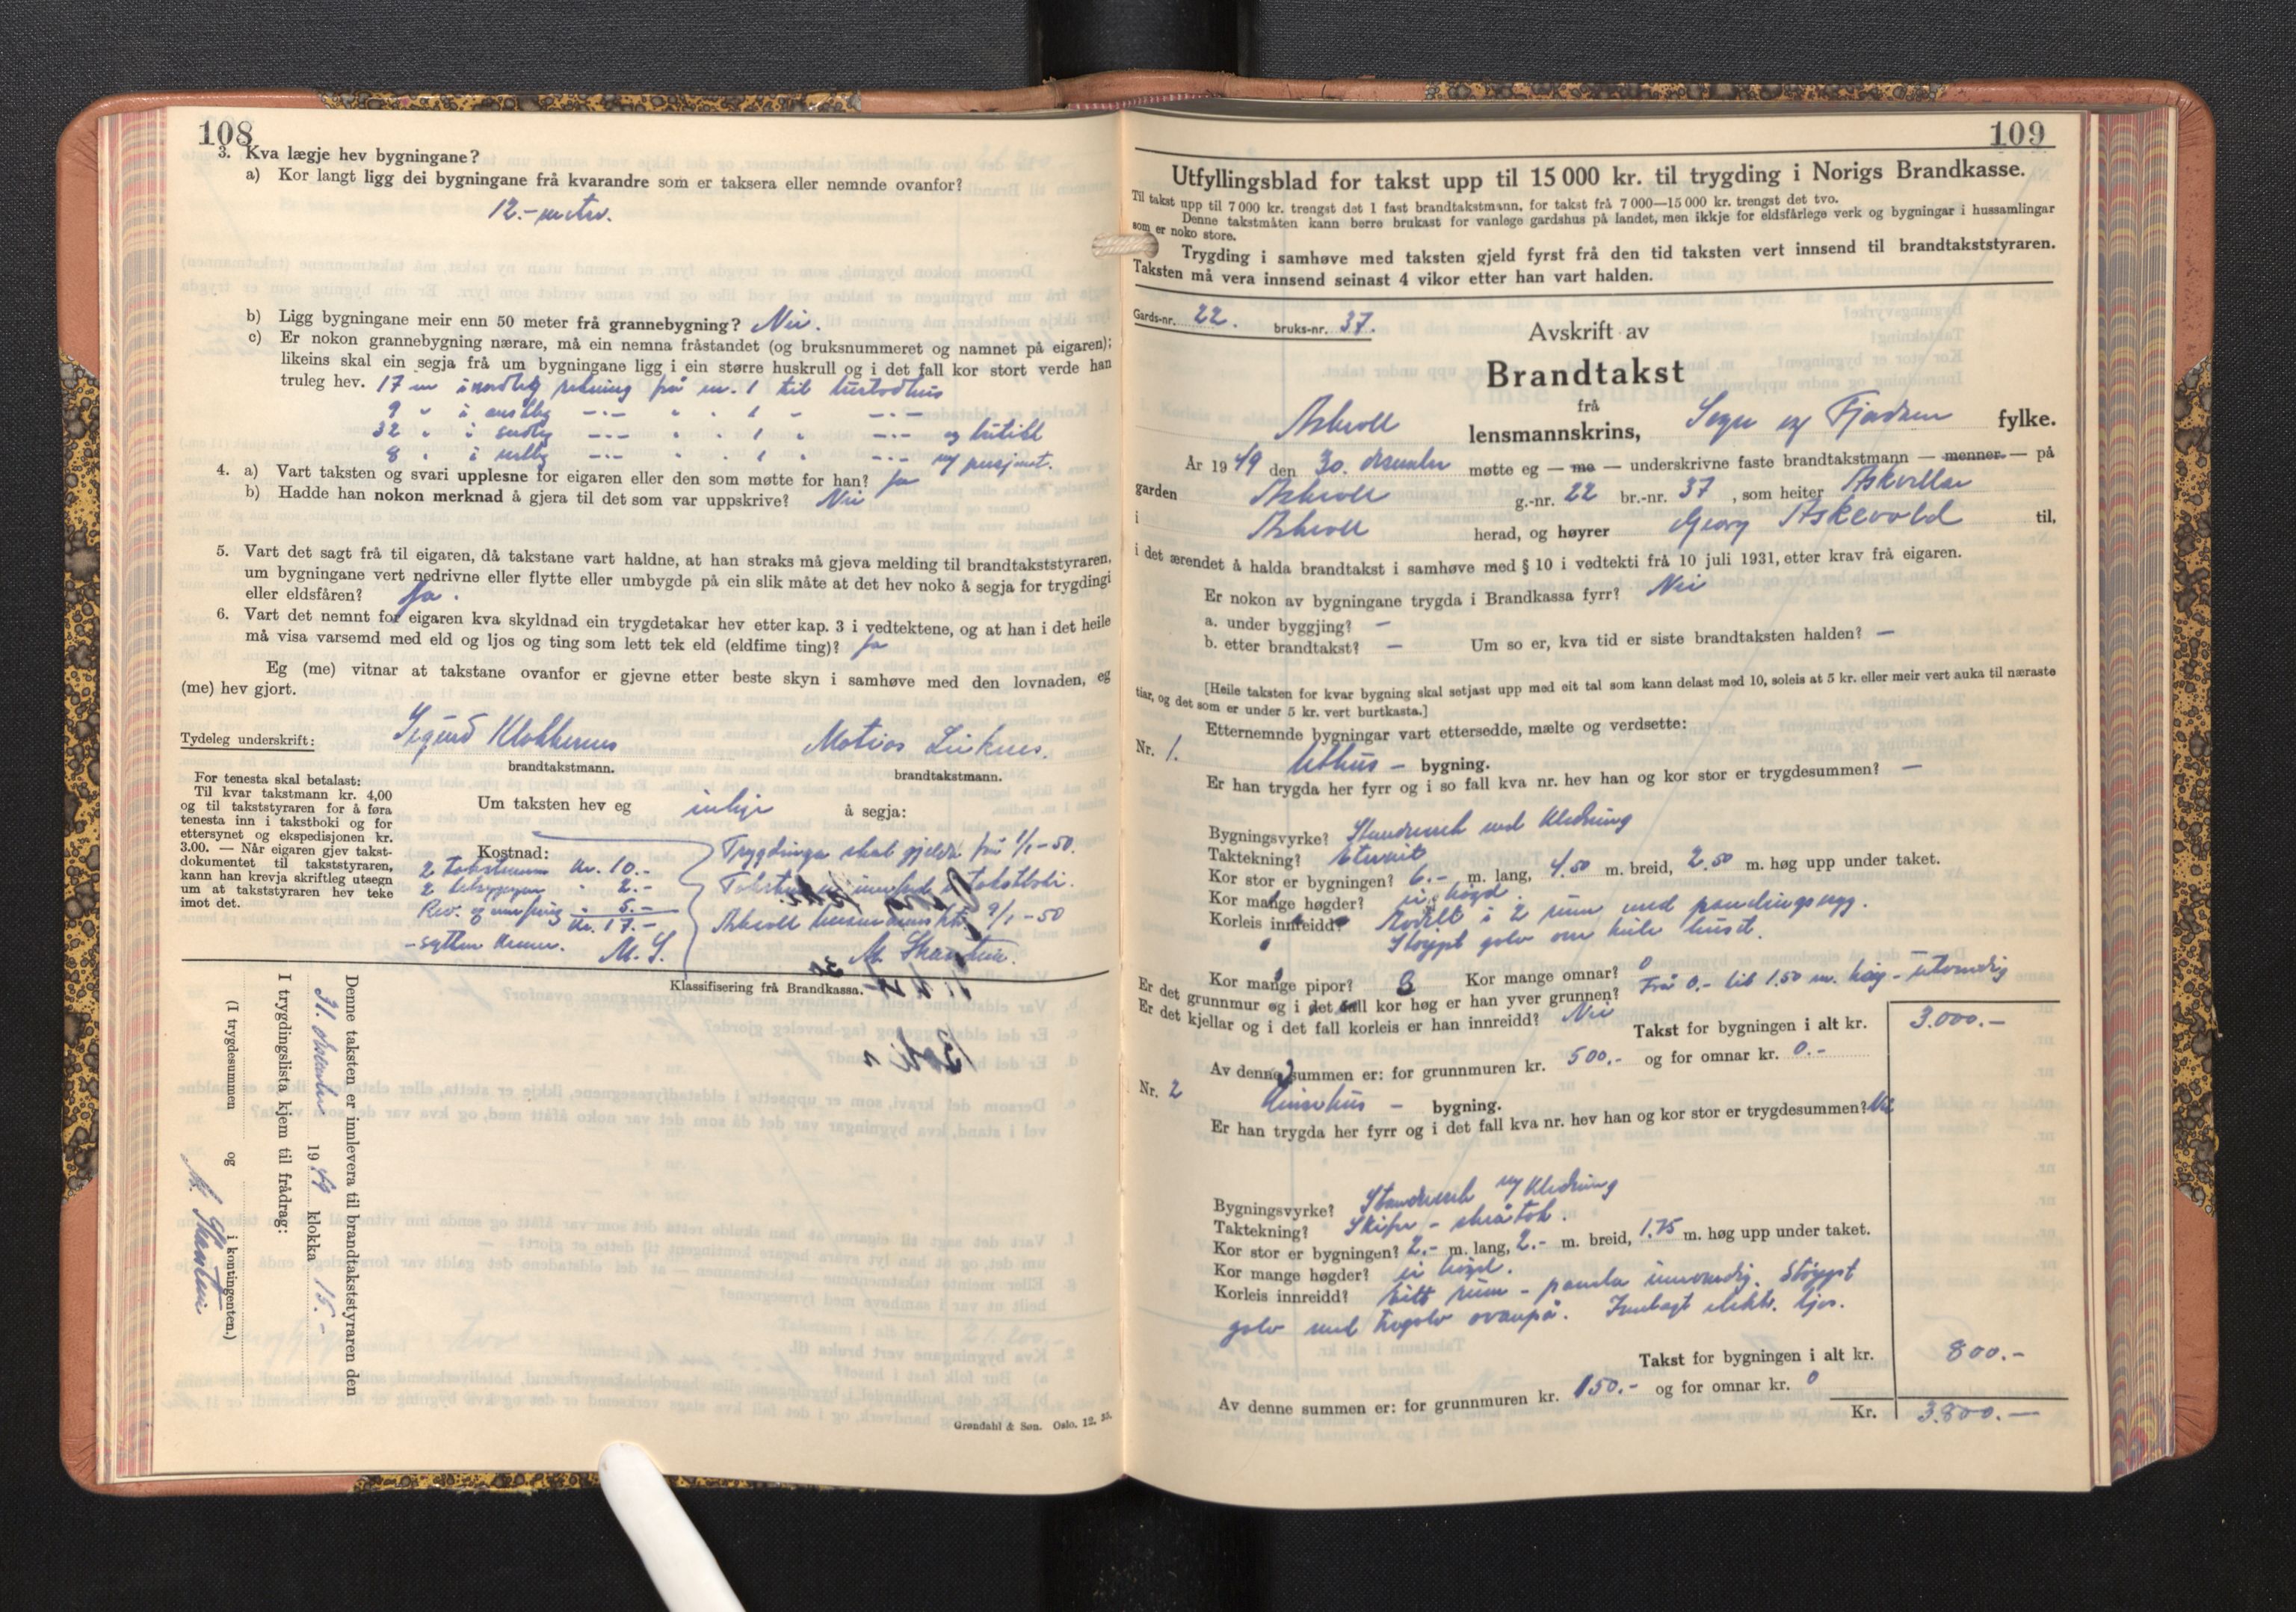 108
3. Kva lægje hev bygningane?
a) Kor langt ligg dei bygningane frå kvarandre som er taksera eller nemnde ovanfor?
12.- meter.
b) Ligg bygningane meir enn 50 meter frå grannebygning? Nei.
c) Er nokon grannebygning nærare, må ein nemna fråstandet (og bruksnummeret og namnet på eigaren);
likeins skal ein segja frå um bygningane ligg i ein større huskrull og i det fall kor stort verde han
truleg hev. 17 m i nordleg retning frå nr. 1 til
9 " i austleg —"— " " 1 " —"—
32 " i sudleg —"— " " 1 " —"— og butikk
8 " i —"— " " 1 " —"— og
4. a) Vart taksten og svari upplesne for eigaren eller den som møtte for han? Ja
b) Hadde han nokon merknad å gjera til det som var uppskrive? Nei
5. Vart det sagt frå til eigaren, då takstane vart haldne, at han straks må gjeva melding til brandtakststyraren,
um bygningane vert nedrivne eller flytte eller umbygde på ein slik måte at det hev noko å segja for trygdingi
eller eldsfåren? Ja.
6. Vart det nemnt for eigaren kva skyldnad ein trygdetakar hev etter kap. 3 i vedtektene, og at han i det heile
må visa varsemd med eld og ljos og ting som lett tek eld (eldfime ting)? Ja
Eg (me) vitnar at takstane ovanfor er gjevne etter beste skyn i samhøve med den lovnaden, eg
(me) hev gjort.
Tydeleg underskrift: Sigurd Klokkernes Matias
brandtakstmann. brandtakstmann.
For tenesta skal betalast:
Til kvar takstmann kr. 4,00
og til takststyraren for å føra
tenesta inn i takstboki og for
ettersynet og ekspedisjonen kr.
3.00. — Når eigaren gjev takst-
dokumentet til takststyraren,
kann han krevja skriftleg utsegn
um at takststyraren hev teke
imot det.
Um taksten hev eg inkje å segja:
Kostnad:
2 takstmenn kr. 10.-
2 " 2.-
Rev. og innføring " 5.-
kr. 17.-
- sytten kroner. M. S.
Trygdinga skal gjelda frå 1/1-50.
i takstboki.
Askvoll lensmannsktr. 9/1-50
M. Skarstein.
Klassifisering frå Brandkassa.
Denne taksten er innlevera til brandtakststyraren den
31. desember 1949 klokka 15.-
I trygdingslista kjem til frådrag:
(I trygdesummen og i kontingenten.)
M. Skarstein
Grøndahl & Søn. Oslo. 12. 35.
109
Utfyllingsblad for takst upp til 15 000 kr. til trygding i Norigs Brandkasse.
Til takst upp til 7 000 kr. trengst det 1 fast brandtakstmann, for takst frå 7 000—15 000 kr. trengst det tvo.
Denne takstmåten kann berre brukast for vanlege gardshus på landet, men ikkje for eldsfårlege verk og bygningar i hussamlingar
som er noko store.
Trygding i samhøve med taksten gjeld fyrst frå den tid taksten vert innsend til brandtakststyraren.
Taksten må vera innsend seinast 4 vikor etter han vart halden.
Gards-nr. 22. bruks-nr. 37.
Avskrift av
Brandtakst
frå
Askvoll lensmannskrins, Sogn og Fjordane fylke.
År 1949 den 30. desember møtte eg — me — underskrivne faste brandtakstmann — menner — på
garden Askvoll g.-nr. 22 br.-nr. 37, som heiter Askvellar
i Askvoll herad, og høyrer Georg Askevold til,
i det ærendet å halda brandtakst i samhøve med § 10 i vedtekti frå 10 juli 1931, etter krav frå eigaren.
Er nokon av bygningane trygda i Brandkassa fyrr? Nei
a. under byggjing? —
b. etter brandtakst? — Um so er, kva tid er siste brandtaksten halden? —
[Heile taksten for kvar bygning skal setjast upp med eit tal som kann delast med 10, soleis at 5 kr. eller meir vert auka til næraste
tiar, og det som er under 5 kr. vert burtkasta.]
Etternemnde bygningar vart ettersedde, mælte og verdsette:
Nr. 1. Uthus - bygning.
Er han trygda her fyrr og i so fall kva nr. hev han og kor stor er trygdesummen? —
Bygningsvyrke? Standverk med kledning
Taktekning? Eternit
Kor stor er bygningen? 6.- m. lang, 4.50 m. breid, 2.50 m. høg upp under taket.
Kor mange høgder? ei høgd.
Korleis innreidd? Avdelt i 2 rum med panelingsvegg.
Støypt golv om heile huset.
Kor mange pipor? 0 Kor mange omnar? 0
Er det grunnmur og i det fall kor høg er han yver grunnen? Frå 0.- til 1.50 m. høg - utvendig
Er det kjellar og i det fall korleis er han innreidd? Nei
Takst for bygningen i alt kr. 3.000.—
Av denne summen er: for grunnmuren kr. 500.- og for omnar kr. 0.-
Nr. 2 - bygning.
Er han trygda her fyrr og i det fall kva nr. hev han og kor stor er trygdesummen? Nei
Bygningsvyrke? Standverk og kledning
Taktekning? Skifer - skråtak.
Kor stor er bygningen? 2.- m. lang, 2.- m. breid, 1.75 m. høg upp under taket.
Kor mange høgder? ei høgd.
Korleis innreidd? Eitt rum - panela innvendig. Støypt
golv med tregolv ovanpå. Innlagt elektr. ljos.
Takst for bygningen i alt kr. 800.—
Av denne summen er: for grunnmuren kr. 150.- og for omnar kr. 0
Kr. 3.800.—